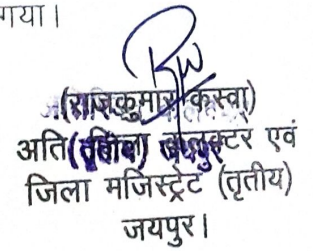 गया।
(राजकुमार कस्वा)
अति जिला कलक्टर एवं
जिला मजिस्ट्रेट (तृतीय)
जयपुर।